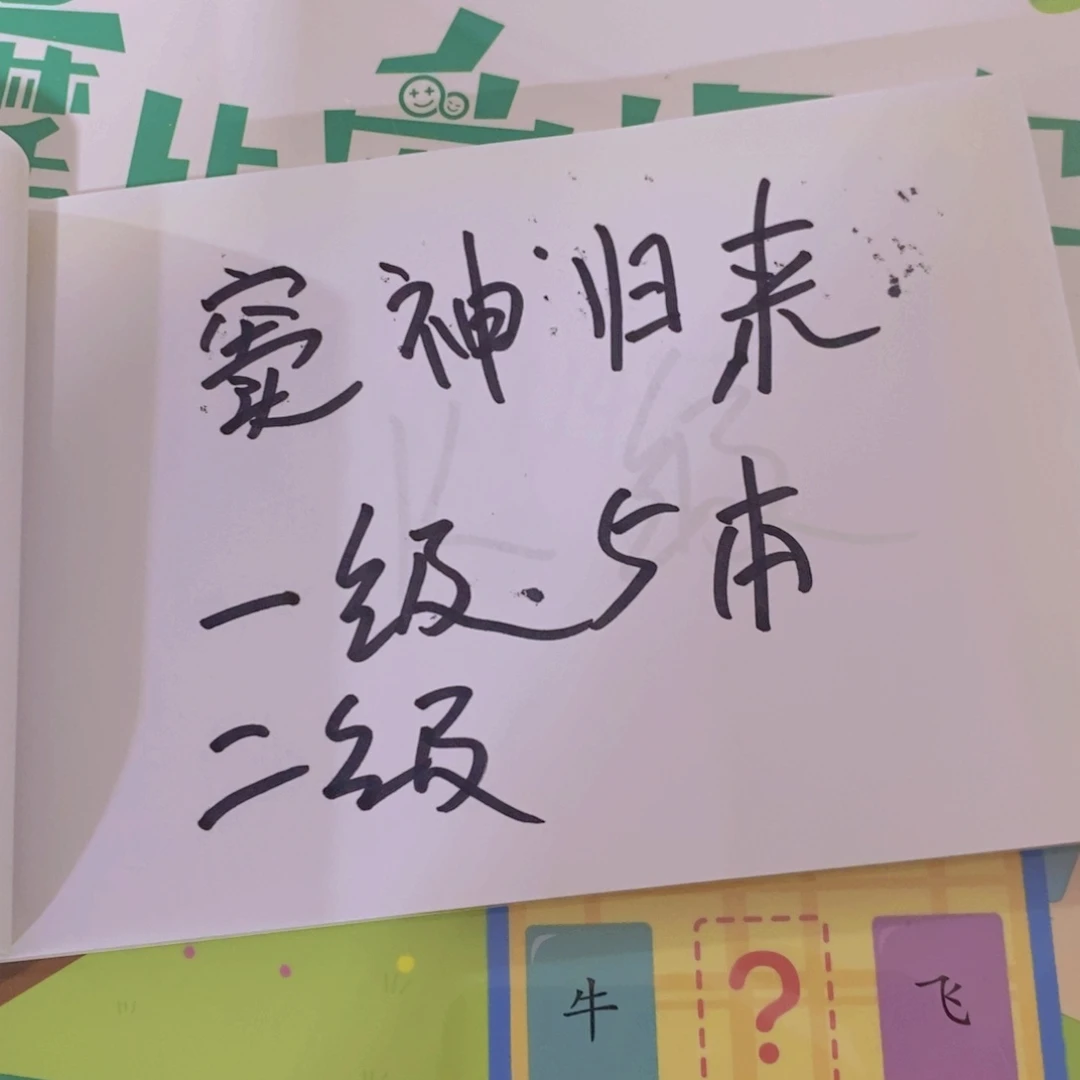 窦神归来
一级.5本
二级
牛 ? 飞